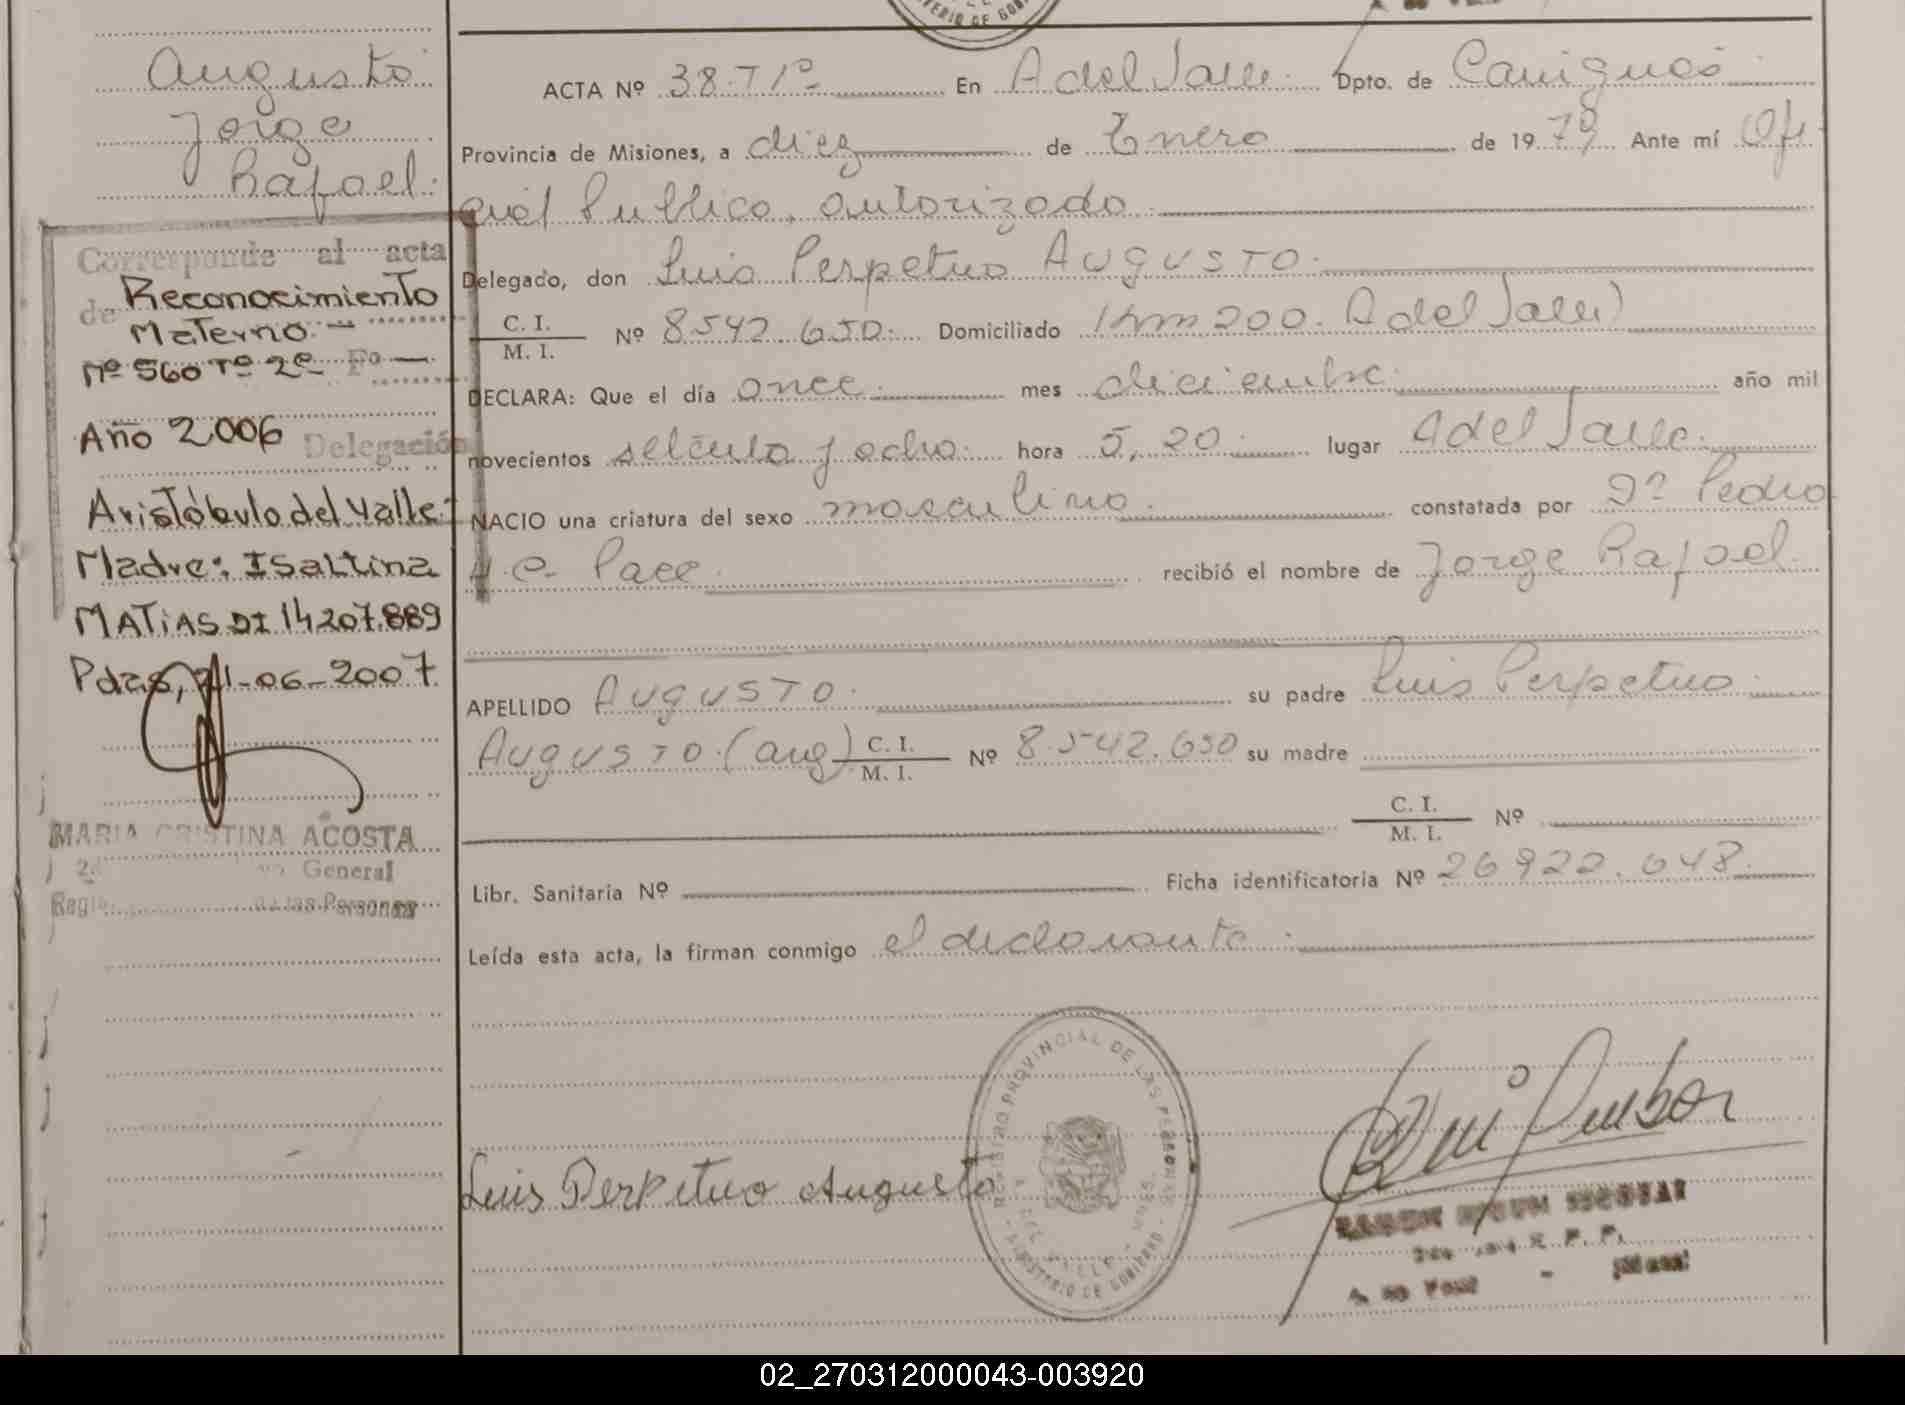 Augusto
Jorge
Rafael.
Corresponde al acta
de Reconocimiento
Materno.—
Nº 560 Tº 2º Fº —
Año 2006 Delegación
Aristóbulo del Valle.
Madre: Isaltina
MATIAS DI 14207.889
Pdas, 21-06-2007
MARIA CRISTINA ACOSTA
General
de las Personas
MINISTERIO DE GOB
ACTA Nº 38. T1º En A del Valle. Dpto. de Cainguás
Provincia de Misiones, a diez de Enero de 1979 Ante mí Ofi
cial Publico, autorizado
Delegado, don Luis Perpetuo AUGUSTO.
C. I.
M. I. Nº 8.542.650. Domiciliado Km 200. A del Valle)
DECLARA: Que el día once mes diciembre año mil
novecientos setenta y ocho. hora 5,20. lugar A del Valle.
NACIO una criatura del sexo masculino. constatada por Dº Pedro
Pace. recibió el nombre de Jorge Rafael.
APELLIDO AUGUSTO. su padre Luis Perpetuo
AUGUSTO. (arg) C. I.
M. I. Nº 8.542.650 su madre
C. I.
M. I. Nº
Libr. Sanitaria Nº Ficha identificatoria Nº 26922.048.
Leída esta acta, la firman conmigo el declarante.
Luis Perpetuo Augusto
REGISTRO PROVINCIAL DE LAS PERSONAS
A. DEL VALLE - MNES.
MINISTERIO DE GOBIERNO
02_270312000043-003920